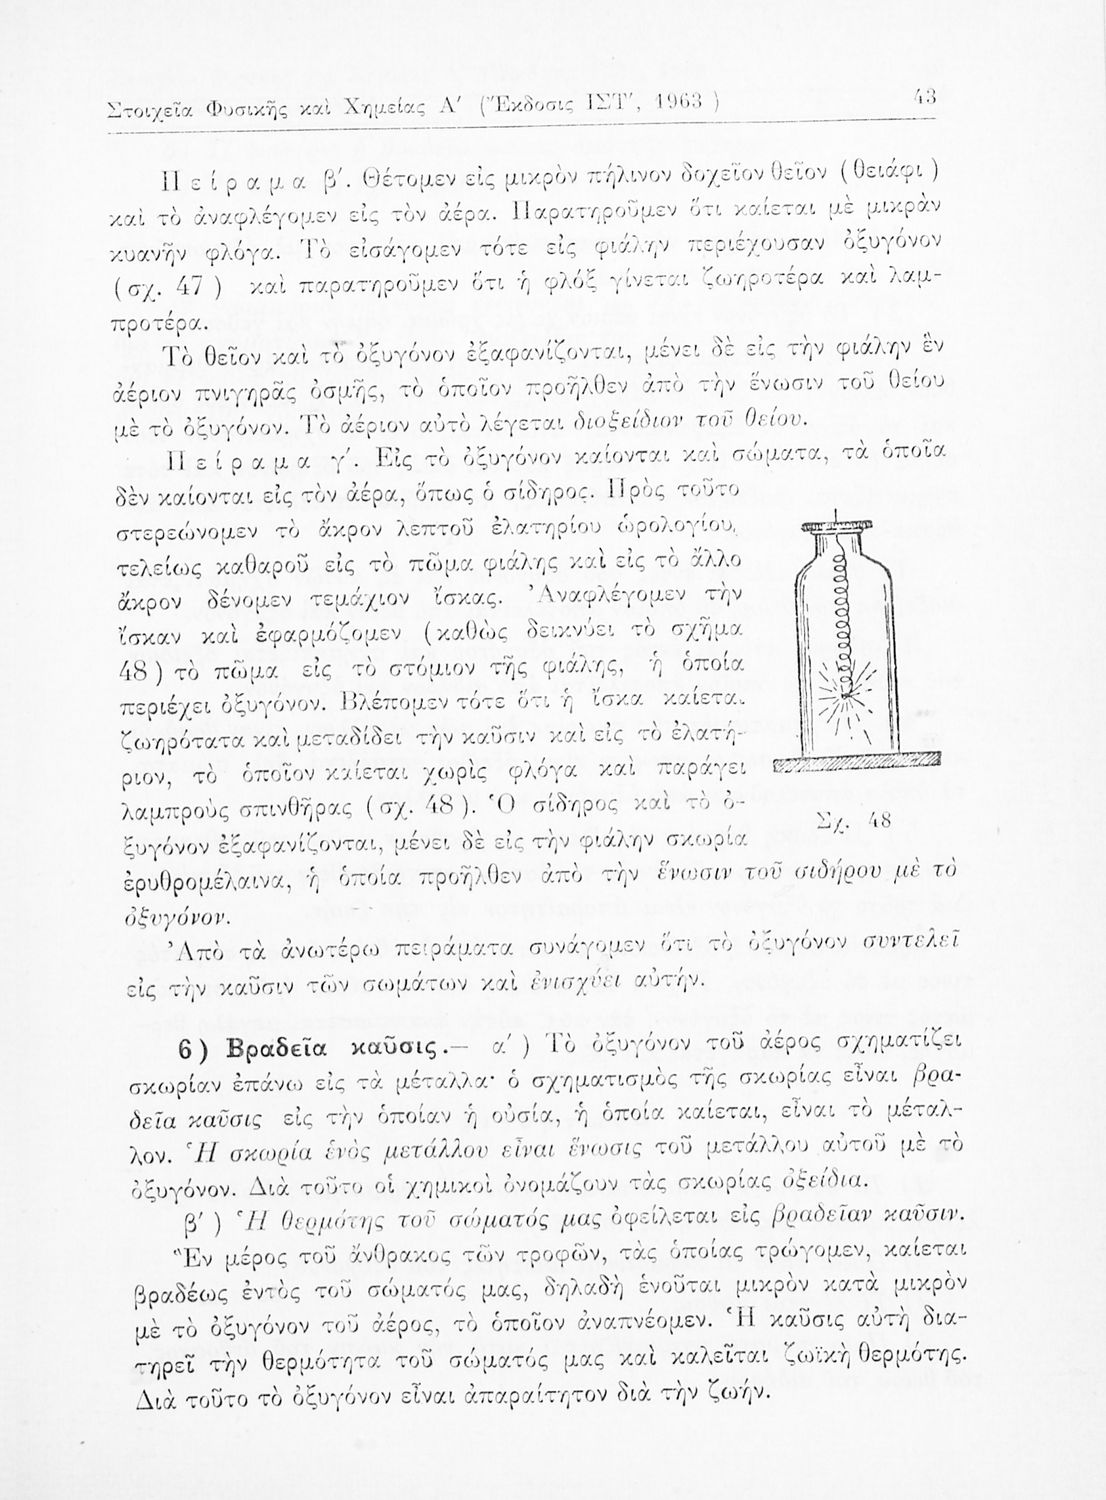 Στοιχεῖα Φυσικῆς καὶ Χημείας Α' (Ἔκδοσις ΙΣΤ', 1963 ) 43
Πείραμα β'. Θέτομεν εἰς μικρὸν πήλινον δοχεῖον θεῖον ( θειάφι )
καὶ τὸ ἀναφλέγομεν εἰς τὸν ἀέρα. Παρατηροῦμεν ὅτι καίεται μὲ μικρὰν
κυανῆν φλόγα. Τὸ εἰσάγομεν τότε εἰς φιάλην περιέχουσαν ὀξυγόνον
( σχ. 47 ) καὶ παρατηροῦμεν ὅτι ἡ φλόξ γίνεται ζωηροτέρα καὶ λαμ-
προτέρα.
Τὸ θεῖον καὶ τὸ ὀξυγόνον ἐξαφανίζονται, μένει δὲ εἰς τὴν φιάλην ἓν
ἀέριον πνιγηρᾶς ὀσμῆς, τὸ ὁποῖον προῆλθεν ἀπὸ τὴν ἕνωσιν τοῦ θείου
μὲ τὸ ὀξυγόνον. Τὸ ἀέριον αὐτὸ λέγεται διοξείδιον τοῦ θείου.
Πείραμα γ'. Εἰς τὸ ὀξυγόνον καίονται καὶ σώματα, τὰ ὁποῖα
δὲν καίονται εἰς τὸν ἀέρα, ὅπως ὁ σίδηρος. Πρὸς τοῦτο
στερεώνομεν τὸ ἄκρον λεπτοῦ ἐλατηρίου ὡρολογίου,
τελείως καθαροῦ εἰς τὸ πῶμα φιάλης καὶ εἰς τὸ ἄλλο
ἄκρον δένομεν τεμάχιον ἴσκας. Ἀναφλέγομεν τὴν
ἴσκαν καὶ ἐφαρμόζομεν (καθὼς δεικνύει τὸ σχῆμα
48 ) τὸ πῶμα εἰς τὸ στόμιον τῆς φιάλης, ἡ ὁποία
περιέχει ὀξυγόνον. Βλέπομεν τότε ὅτι ἡ ἴσκα καίεται
ζωηρότατα καὶ μεταδίδει τὴν καῦσιν καὶ εἰς τὸ ἐλατή-
ριον, τὸ ὁποῖον καίεται χωρὶς φλόγα καὶ παράγει
λαμπροὺς σπινθῆρας ( σχ. 48 ). Ὁ σίδηρος καὶ τὸ ὀ-
ξυγόνον ἐξαφανίζονται, μένει δὲ εἰς τὴν φιάλην σκωρία
Σχ. 48
ἐρυθρομέλαινα, ἡ ὁποία προῆλθεν ἀπὸ τὴν ἕνωσιν τοῦ σιδήρου μὲ τὸ
ὀξυγόνον.
Ἀπὸ τὰ ἀνωτέρω πειράματα συνάγομεν ὅτι τὸ ὀξυγόνον συντελεῖ
εἰς τὴν καῦσιν τῶν σωμάτων καὶ ἐνισχύει αὐτήν.
6 ) Βραδεῖα καῦσις.— α' ) Τὸ ὀξυγόνον τοῦ ἀέρος σχηματίζει
σκωρίαν ἐπάνω εἰς τὰ μέταλλα· ὁ σχηματισμὸς τῆς σκωρίας εἶναι βρα-
δεῖα καῦσις εἰς τὴν ὁποίαν ἡ οὐσία, ἡ ὁποία καίεται, εἶναι τὸ μέταλ-
λον. Ἡ σκωρία ἑνὸς μετάλλου εἶναι ἕνωσις τοῦ μετάλλου αὐτοῦ μὲ τὸ
ὀξυγόνον. Διὰ τοῦτο οἱ χημικοὶ ὀνομάζουν τὰς σκωρίας ὀξείδια.
β' ) Ἡ θερμότης τοῦ σώματός μας ὀφείλεται εἰς βραδεῖαν καῦσιν.
Ἓν μέρος τοῦ ἄνθρακος τῶν τροφῶν, τὰς ὁποίας τρώγομεν, καίεται
βραδέως ἐντὸς τοῦ σώματός μας, δηλαδὴ ἑνοῦται μικρὸν κατὰ μικρὸν
μὲ τὸ ὀξυγόνον τοῦ ἀέρος, τὸ ὁποῖον ἀναπνέομεν. Ἡ καῦσις αὐτὴ δια-
τηρεῖ τὴν θερμότητα τοῦ σώματός μας καὶ καλεῖται ζωϊκὴ θερμότης.
Διὰ τοῦτο τὸ ὀξυγόνον εἶναι ἀπαραίτητον διὰ τὴν ζωήν.